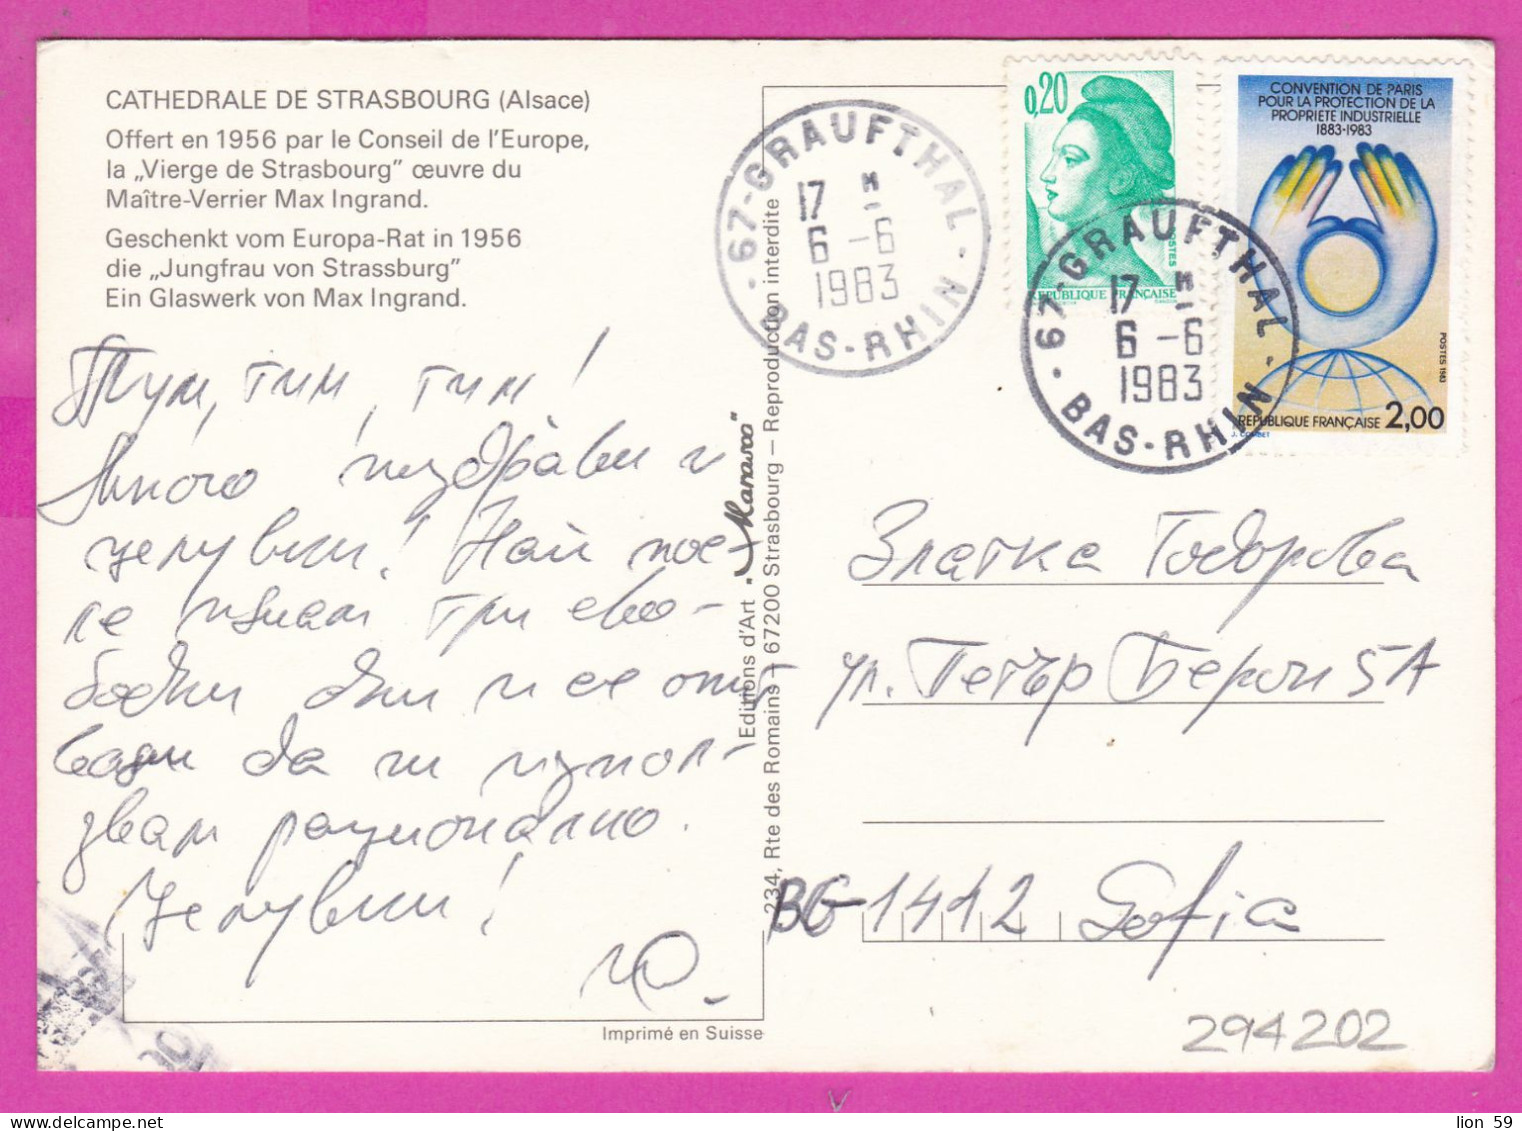 CATHEDRALE DE STRASBOURG (Alsace)
Offert en 1956 par le Conseil de l'Europe,
la „Vierge de Strasbourg" œuvre du
Maître-Verrier Max Ingrand.
Geschenkt vom Europa-Rat in 1956
die „Jungfrau von Strassburg"
Ein Glaswerk von Max Ingrand.
Тим, тим, тим!
Много поздрави и
целувки! Най пос-
ле имам три сво-
бодни дни и се опит
да ги използ-
звам рационално.
Целувки!
Ю.
Imprimé en Suisse
Editions d'Art
234, Rte des Romains – 67200 Strasbourg — Reproduction interdite
67-GRAUFTHAL
17 H
6 -6
1983
BAS-RHIN
0,20
POSTES
REPUBLIQUE FRANÇAISE
67-GRAUFTHAL
17 H
6 -6
1983
BAS-RHIN
CONVENTION DE PARIS
POUR LA PROTECTION DE LA
PROPRIETE INDUSTRIELLE
1883-1983
POSTES 1983
REPUBLIQUE FRANÇAISE 2,00
J. COMBET
Златка Тодорова
ул. Петър Берон 5А
BG-1412 Sofia
294202
lion 59